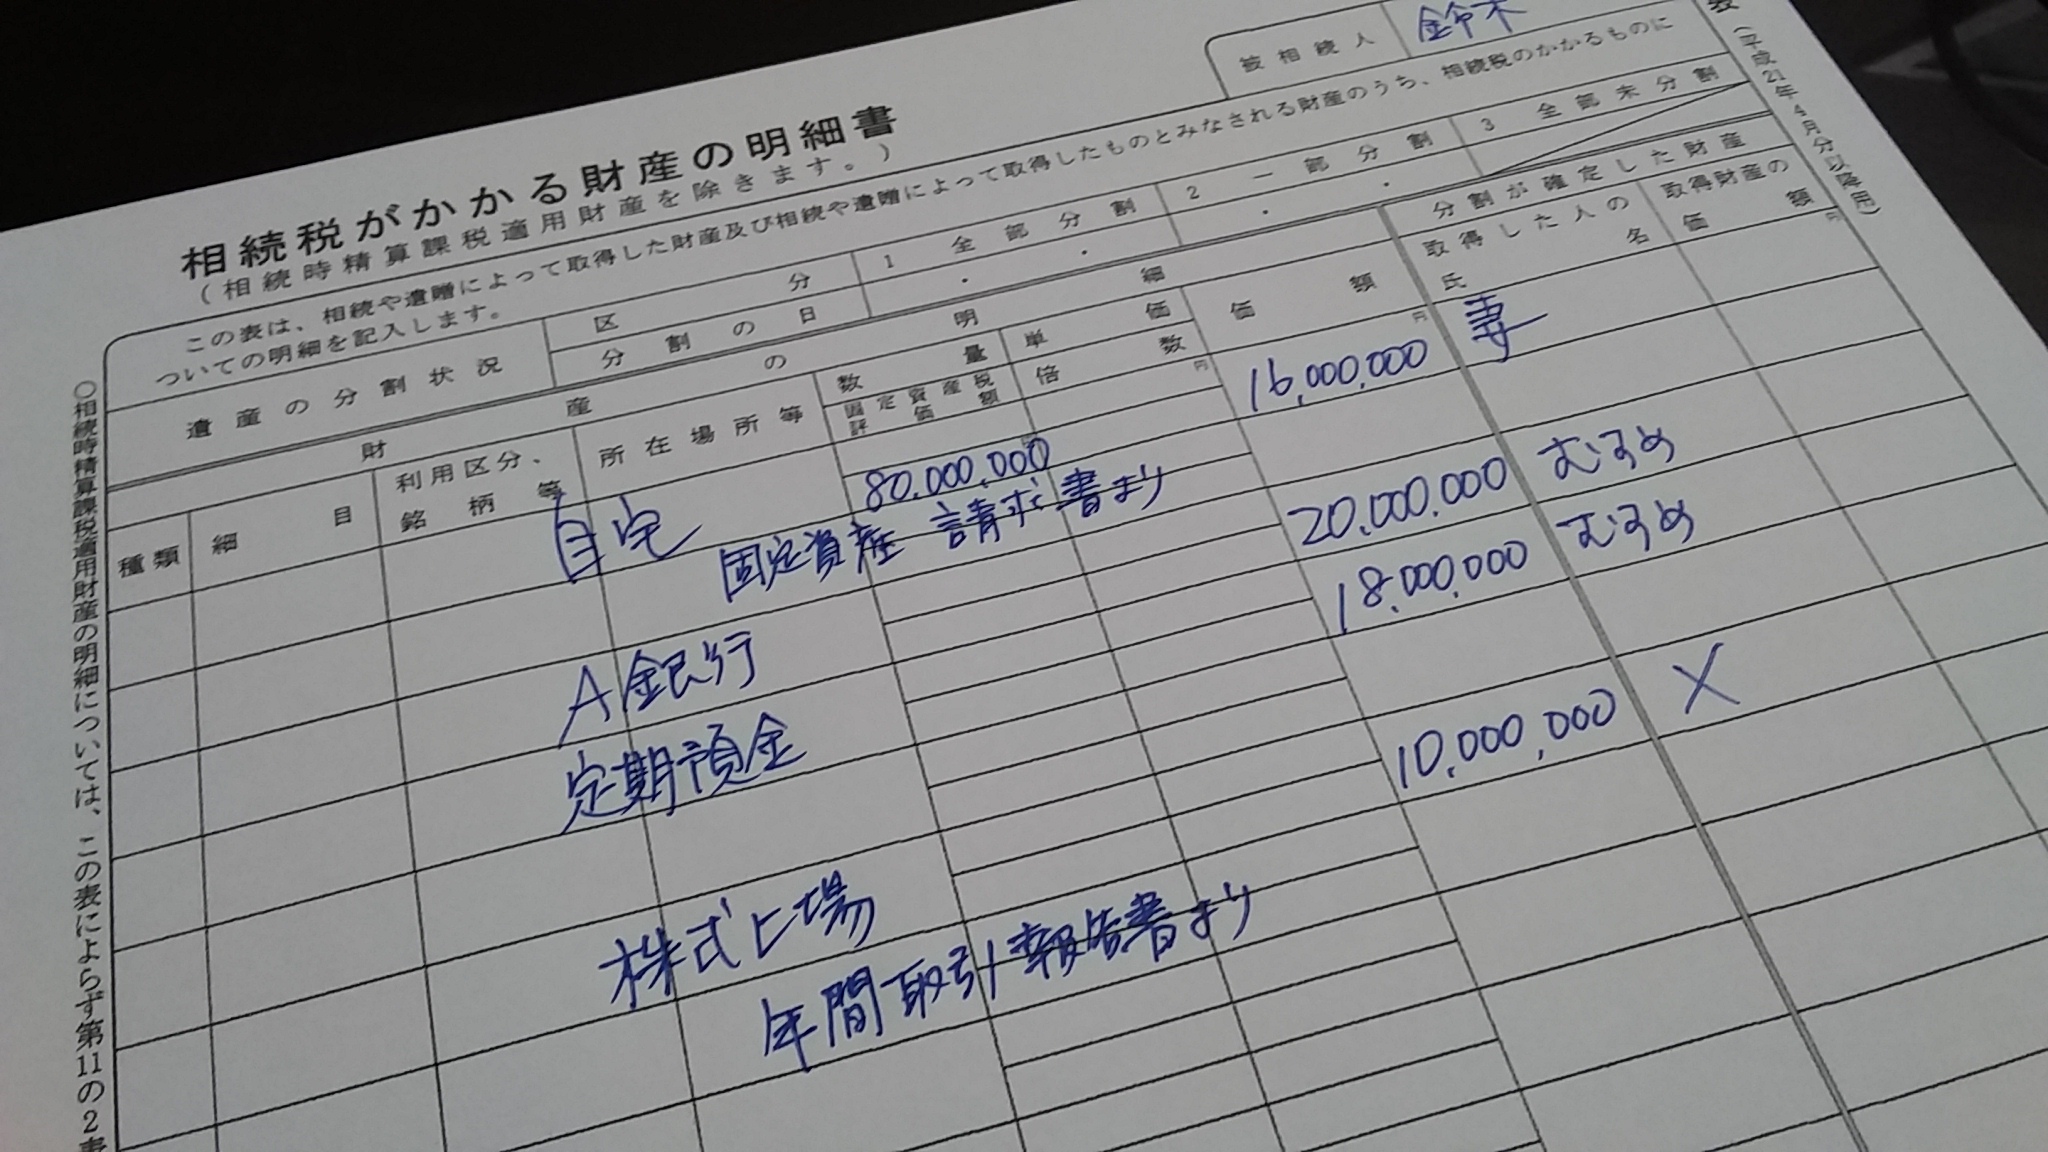 被相続人 鈴木
表(平成21年4月分以降用)
相続税がかかる財産の明細書
(相続時精算課税適用財産を除きます。)
この表は、相続や遺贈によって取得した財産及び相続や遺贈によって取得したものとみなされる財産のうち、相続税のかかるものに
ついての明細を記入します。
遺産の分割状況
区分 1 全部分割 2 一部分割 3 全部未分割
分割の日 ・ ・ ・ ・
財産の明細
分割が確定した財産
種類
細目
利用区分、
銘柄等
所在場所等
数量
固定資産税
評価額
単価
倍数
価額
取得した人の
氏名
取得財産の
価額
円
円
円
自宅 80,000,000 16,000,000 妻
固定資産 請求書より
A銀行 20,000,000 むすめ
定期預金 18,000,000 むすめ
株式上場 10,000,000 X
年間取引報告書より
○相続時精算課税適用財産の明細については、この表によらず第11の2表